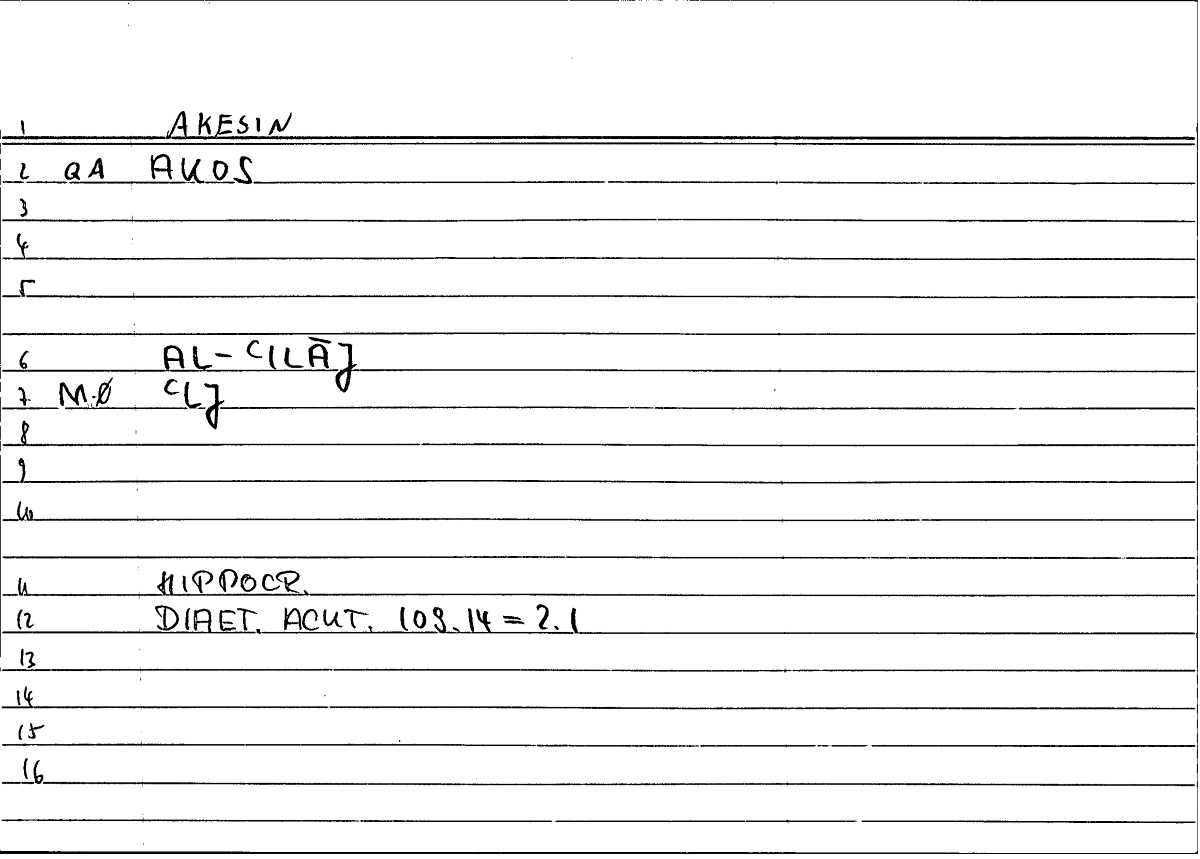 1 AKESIN
2 QA AKOS
3
4
5
6 AL-ʿILĀJ
7 MØ ʿLJ
8
9
10
11 HIPPOCR.
12 DIAET. ACUT. 109.14 = 2.1
13
14
15
16